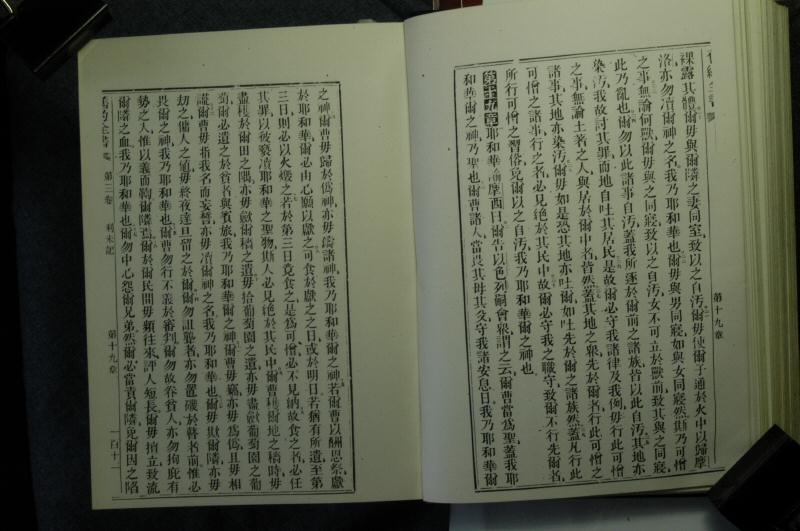 裸露其體爾毋與爾隣之妻同室致以之自汚爾毋使爾子通於火中以歸摩
洛亦勿凟爾神之名我乃耶和華也爾毋與男同寢如與女同寢然斯乃可憎
之事無論何獸爾毋與之同寢致以之自汚女不可立於獸前致其與之同寢
此乃亂也爾勿以此諸事自汚蓋我所逐於爾前之諸族皆以此自汚其地亦
染汚我故討其罪而地自吐其居民是故爾必守我諸律及我例毋行此可憎
之事無論土著之人與居於爾中者皆然蓋其地之衆先於爾者行此可憎之
諸事其地亦染汚爾毋如是恐其地亦吐爾如吐先於爾之諸族然蓋凡行此
可憎之諸事行之者必見絕於其民中故爾必守我之職守致爾不行先爾者
所行可憎之習俗免爾以之自汚我乃耶和華爾之神也
第十九章 耶和華諭摩西曰爾告以色列嗣會衆謂之云爾曹當爲聖蓋我耶
和華爾之神乃聖也爾曹諸人當畏其母其父守我諸安息日我乃耶和華爾
第十九章
之神爾曹毋歸於僞神亦毋鑄諸神我乃耶和華爾之神若爾曹以酬恩祭獻
於耶和華爾必由心願以獻之可食於獻之之日或於明日若猶有所遺至第
三日則必以火燬之若於第三日竟食之是爲可憎必不見納故食之者必任
其罪以彼褻凟耶和華之聖物斯人必見絕於其民中爾曹穫爾地之穡時毋
盡穫於爾田之隅亦毋斂穡之遺毋拾葡萄園之遺亦毋盡斂葡萄園之葡
萄爾必遺之於貧者與賓旅我乃耶和華爾之神爾曹毋竊亦毋爲僞且毋相
謊爾曹毋指我名而妄誓亦毋凟爾神之名我乃耶和華也爾毋欺爾隣亦毋
劫之傭人之値毋終夜達旦留之於爾爾勿詛聾者亦勿置礙於瞽者前惟必
畏爾之神我乃耶和華也爾曹勿行不義於審判爾勿故眷貧人亦勿徇庇有
勢之人惟以義而鞫爾隣焉爾於爾民間毋頻往來評人短長爾毋擅立致流
爾隣之血我乃耶和華也爾勿中心怨爾兄弟然爾必當責爾隣免爾因之陷
舊約全書 第三卷 利未記 第十九章 一百十一